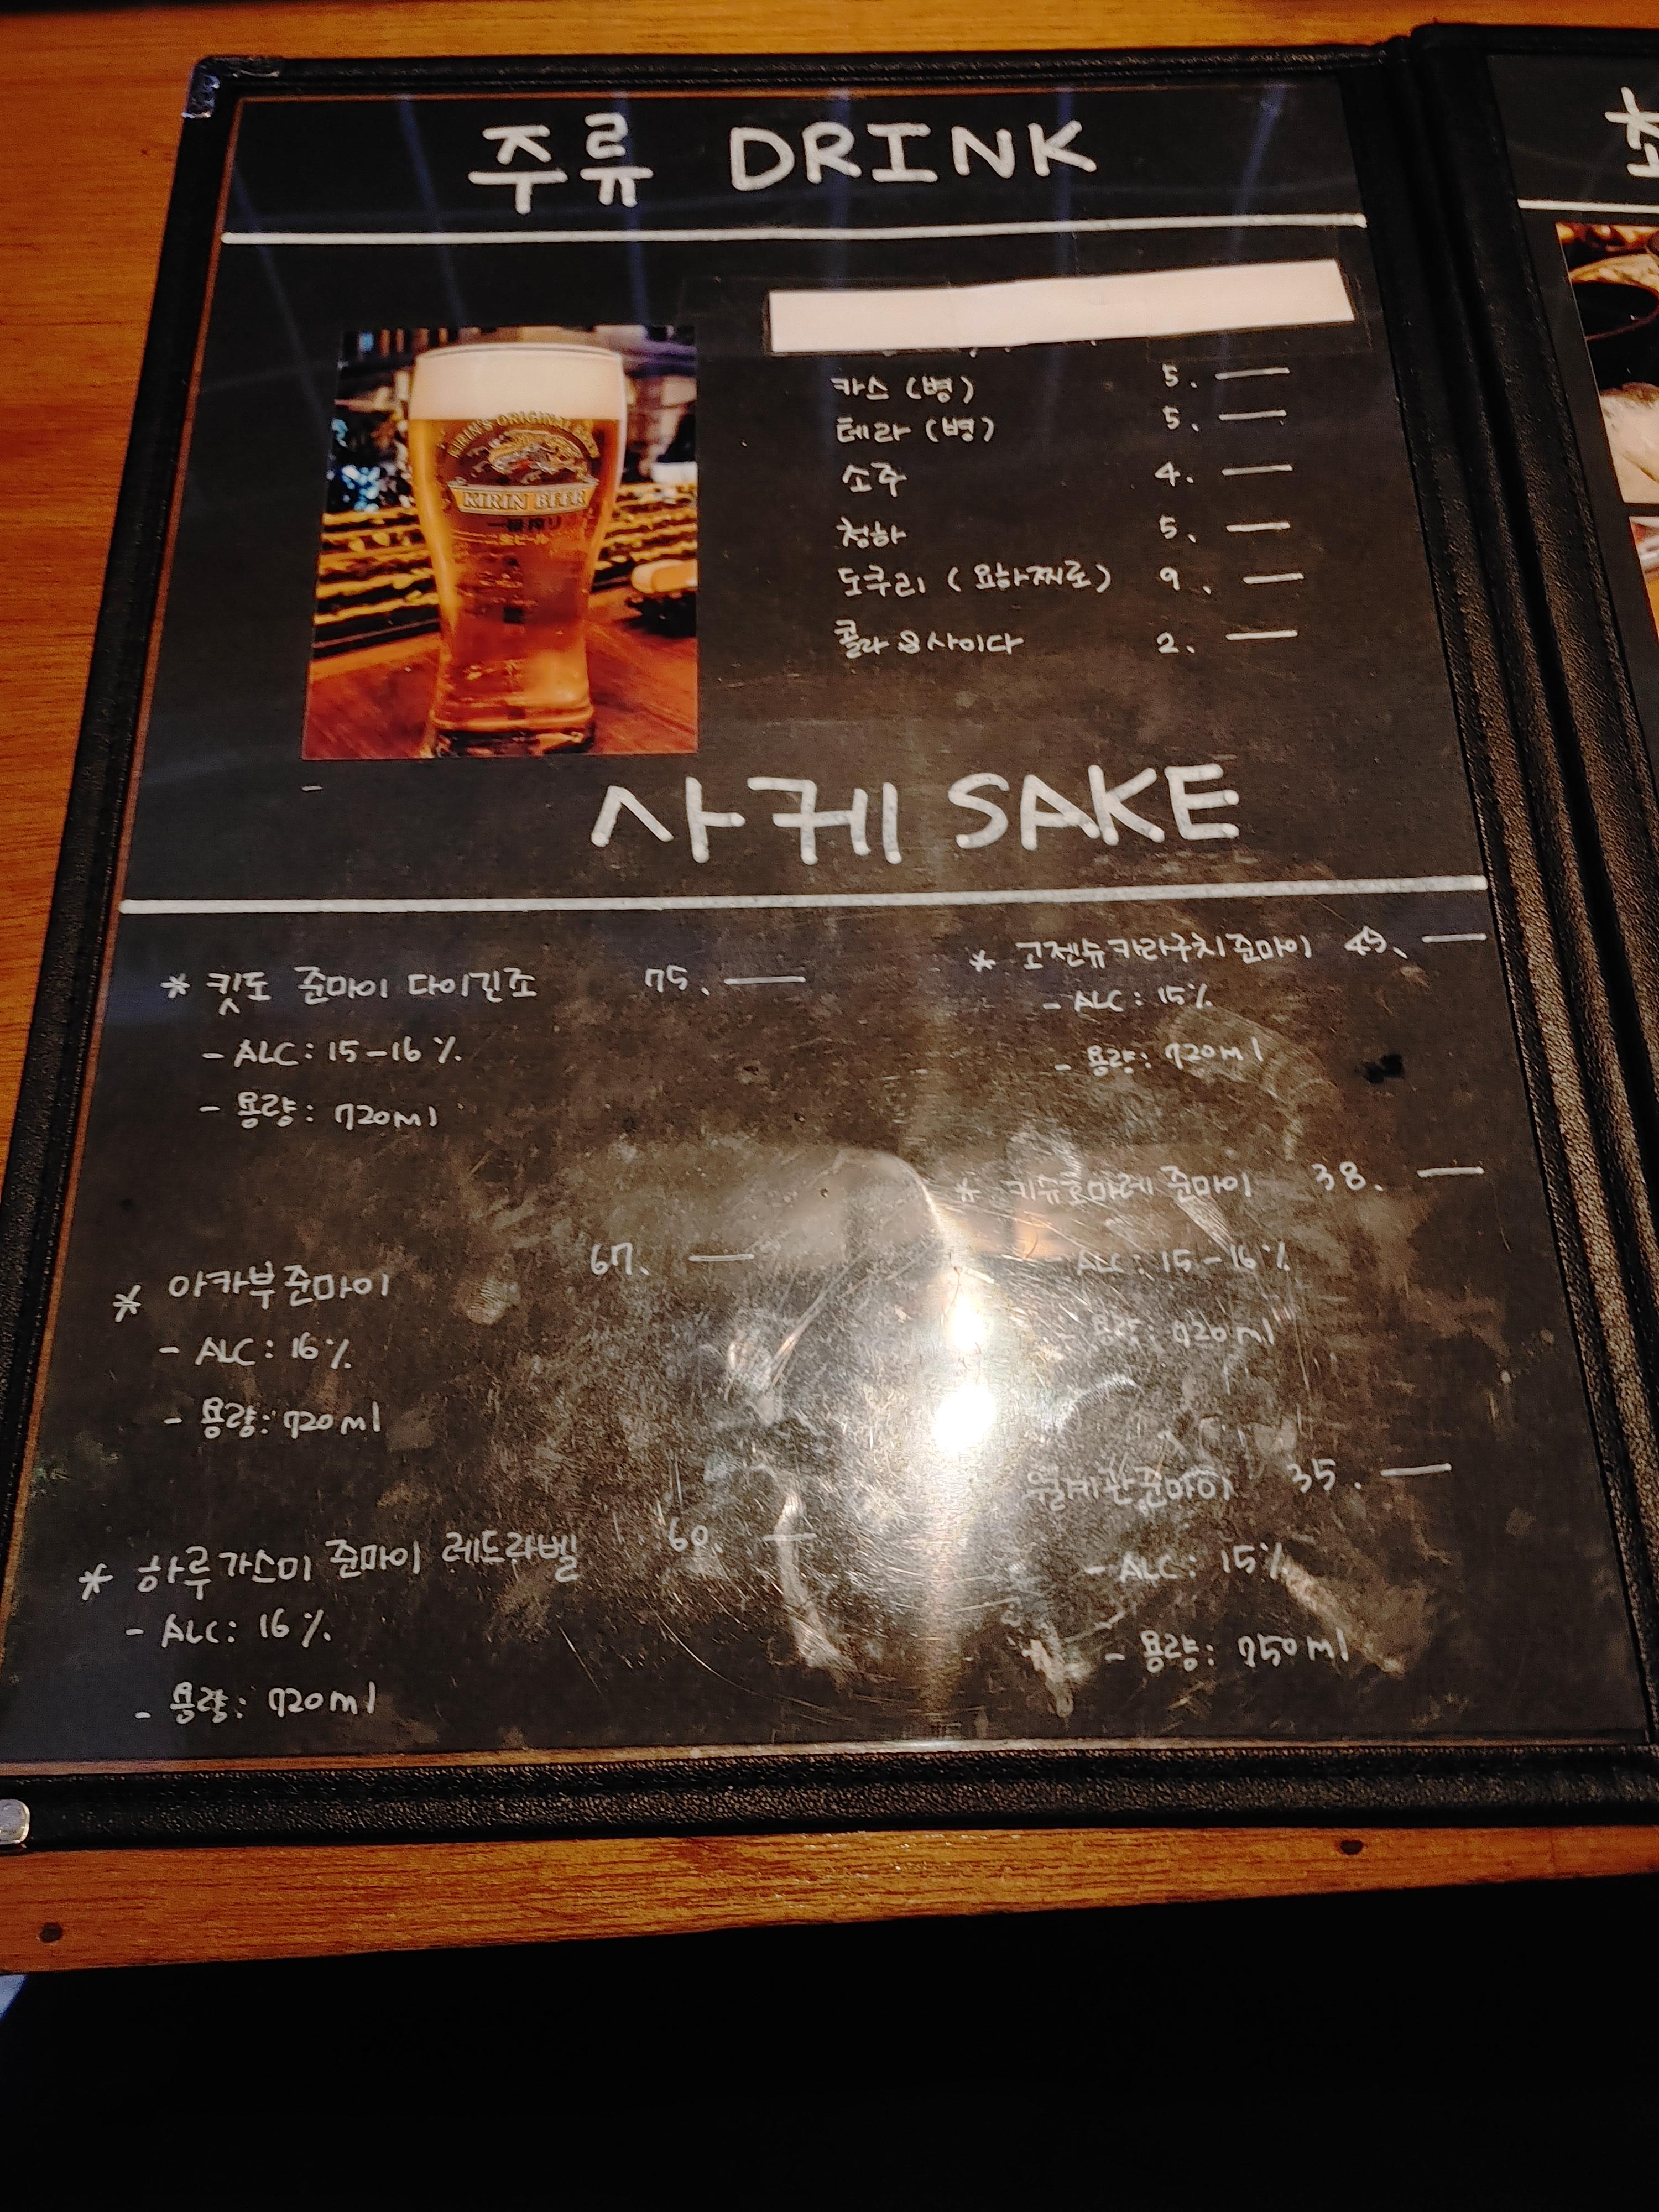 주류 DRINK
KIRIN'S ORIGINAL
KIRIN BEER
一番搾り
生ビール
카스 (병) 5. —
테라 (병) 5. —
소주 4. —
청하 5. —
도쿠리 (요하찌로) 9. —
콜라 & 사이다 2. —
사케 SAKE
* 킷도 준마이 다이긴죠 75. —
- ALC: 15-16 %
- 용량: 720ml
* 아카부준마이 67. —
- ALC: 16 %
- 용량: 720ml
* 하루가스미 준마이 레드라벨 60. —
- ALC: 16 %
- 용량: 720ml
* 고젠슈카라구치준마이 —
- ALC: 15%
- 용량: 720ml
* 키슈호마레 준마이 38. —
- ALC: 15-16%
- 용량: 720ml
월계관준마이 35. —
- ALC: 15%
- 용량: 750ml